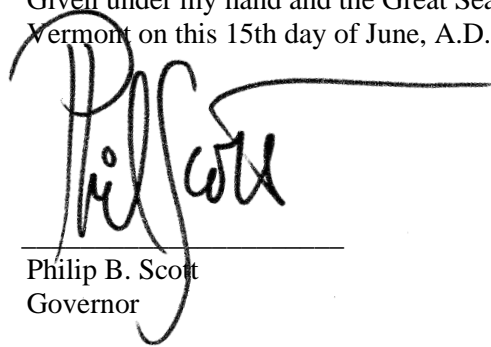 Given under my hand and the Great Sea
Vermont on this 15th day of June, A.D.
Phil Scott
Philip B. Scott
Governor